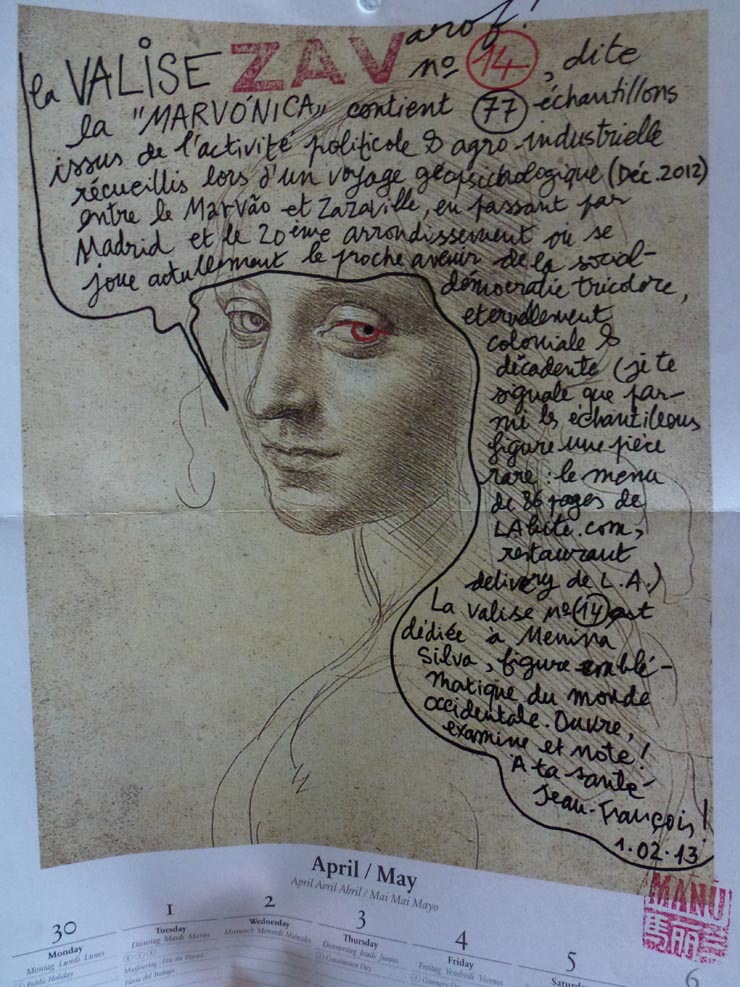 arof!
la VALISE ZAV nº 14, dite
la "MARVÓNICA" contient 77 échantillons
issus de l'activité politicole & agro-industrielle
récueillis lors d'un voyage géopsichologique (Déc. 2012)
entre le Marvão et Zazaville, en passant par
Madrid et le 20ème arrondissement où se
joue actullement le proche avenir de la social-
démocratie tricolore,
eternellement
coloniale &
décadente (je te
signale que par-
mi les échantillons
figure une pièce
rare : le menu
de 86 pages de
LAbite.com,
restaurant
delivery de L.A.)
La valise nº 14 est
dédiée à Menina
Silva, figure emblé-
matique du monde
occidentale. Ouvre,
examine et note!
A ta santé
Jean-François!
1.02.13
MANU
April / May
April Avril Abril / Mai Mai Mayo
30 1 2 3 4 5 6
Monday Tuesday Wednesday Thursday Friday Saturd
Montag Lundi Lunes
Dienstag Mardi Martes
Mittwoch Mercredi Miércoles
Donnerstag Jeudi Jueves
Freitag Vendredi Viernes
Public Holiday
Constitution Day